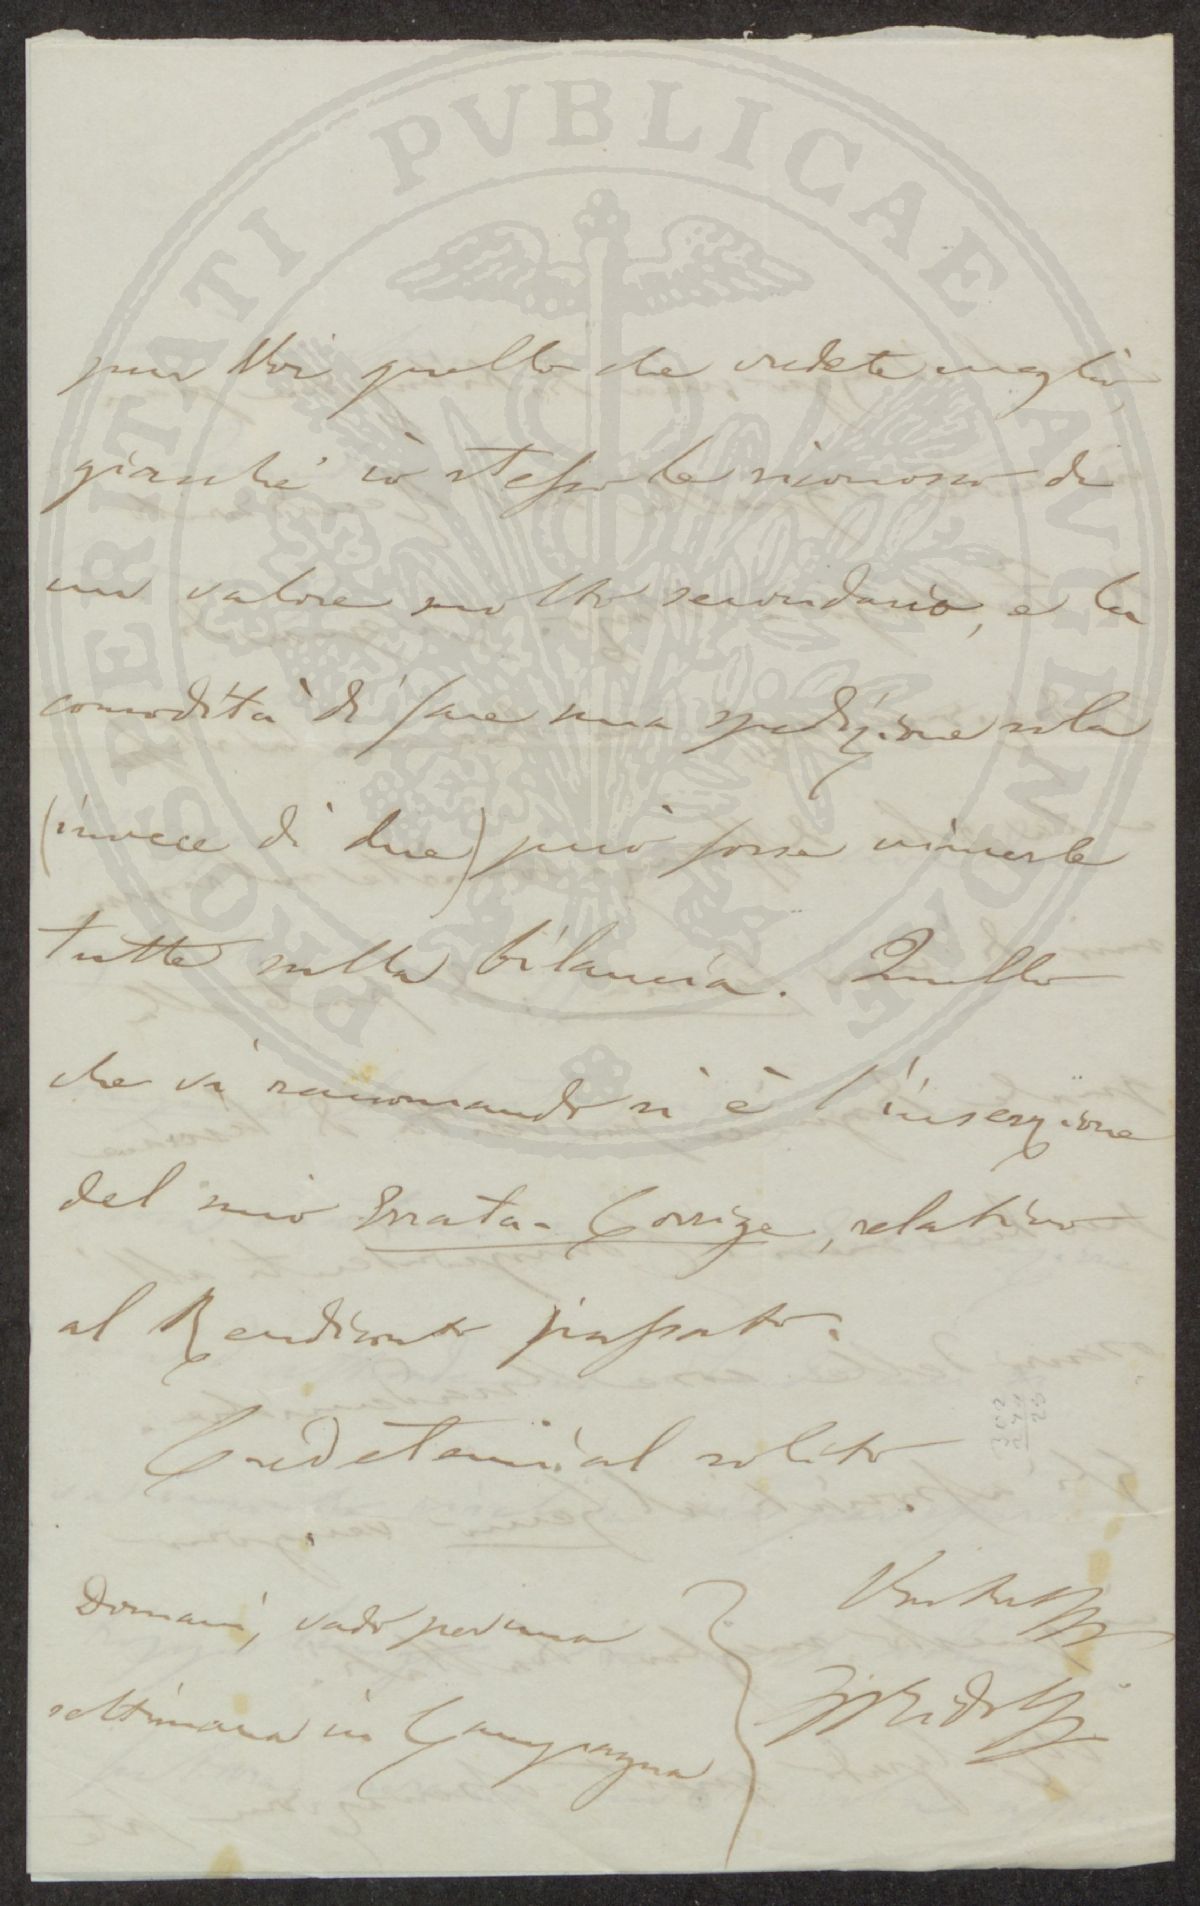 PROSPERITATI PVBLICAE AVGENDAE
pur Voi quello che credete meglio,
giacchè io stesso le riconosco di
un valore molto secondario, e la
comodità di fare una spedizione sola
(invece di due) può forse vincerle
tutte sulla bilancia. Quello
che vi raccomando si è l'inserzione
del mio Errata-Corrige, relativo
al Rendiconto passato.
Credetemi al solito
Domani, vado per una
settimana in Campagna
Ridolfi
302
274
28